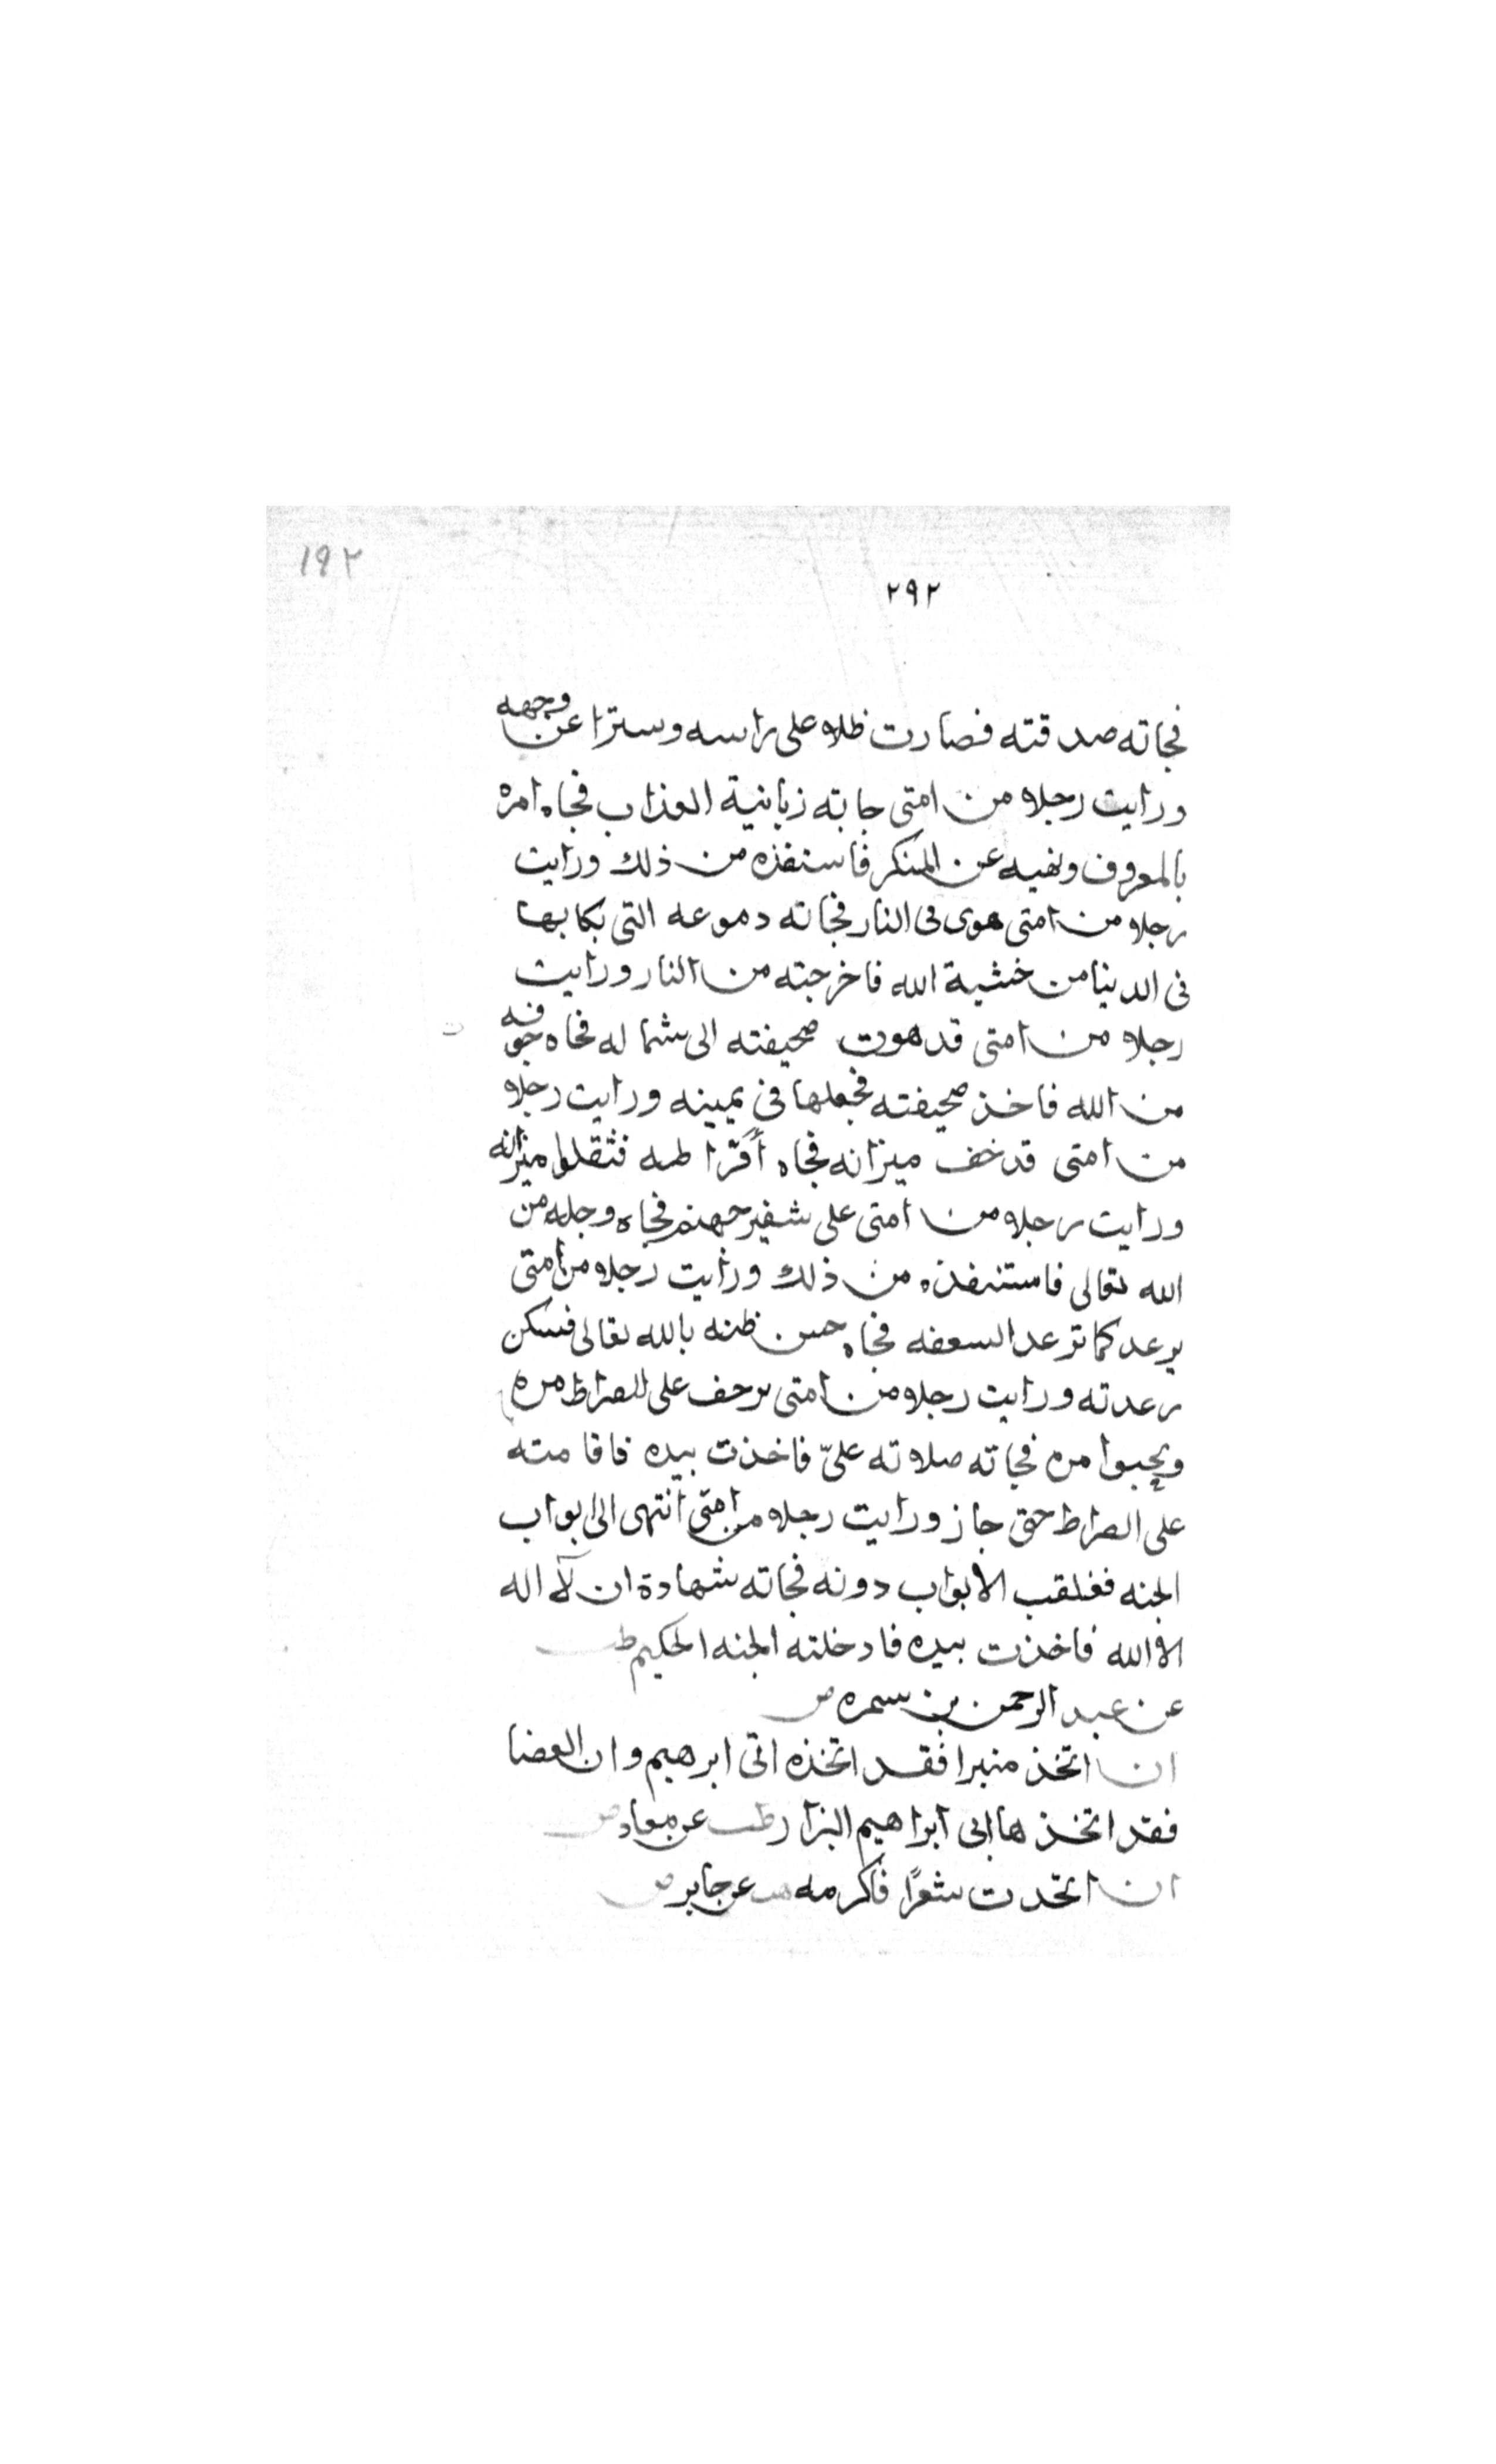 ١٩٢
٢٩٢
فجاته صدقته فصارت ظلا على راسه وسترا عن وجهه
ورايت رجلا من امتى جاته زبانية العذاب فجاه امره
بالمعروف ونهيه عن المنكر فاستنقذه من ذلك ورايت
رجلا من امتى هوى فى النار فجاته دموعه التى بكا بها
فى الدنيا من خشية الله فاخرجته من النار ورايت
رجلا من امتى قد هوت صحيفته الى شماله فجاه خوفه
من الله فاخذ صحيفته فجعلها فى يمينه ورايت رجلا
من امتى قد خف ميزانه فجاه أفراطه فثقلوا ميزانه
ورايت رجلا من امتى على شفير جهنم فجاه وجله من
الله تعالى فاستنقذه من ذلك ورايت رجلا من امتى
يرعد كما ترعد السعفه فجاه حسن ظنه بالله تعالى فسكن
رعدته ورايت رجلا من امتى يزحف على الصراط مره
ويجبوا مره فجاته صلاته علىّ فاخذت بيده فاقامته
على الصراط حتى جاز ورايت رجلا من امتى انتهى الى ابواب
الجنه فغلقب الابواب دونه فجاته شهادة ان لآ اله
الا الله فاخذت بيده فادخلته الجنه الحكيم طب
عن عبد الرحمن بن سمره ض
ان اتخذ منبرا فقد اتخذه اتى ابرهيم وان العضا
فقد اتخذها ابى ابراهيم البزار طب عن معاد ض
ان اتخدت شعرًا فاكرمه هب عن جابر ض